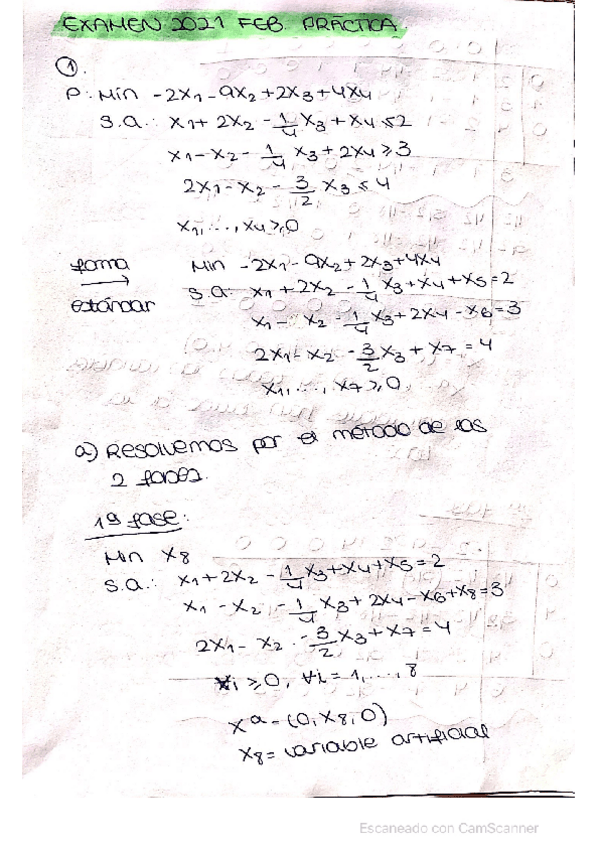 EXAMEN 2021 FEB. PRÁCTICA.
①.
P: Min -2x1 - 9x2 + 2x3 + 4x4
S.a.: x1 + 2x2 - 1/4 x3 + x4 ≤ 2
x1 - x2 - 1/4 x3 + 2x4 ≥ 3
2x1 - x2 - 3/2 x3 ≤ 4
x1, ..., x4 ≥ 0
forma Min -2x1 - 9x2 + 2x3 + 4x4
→ S.a: x1 + 2x2 - 1/4 x3 + x4 + x5 = 2
estándar x1 - x2 - 1/4 x3 + 2x4 - x6 = 3
2x1 - x2 - 3/2 x3 + x7 = 4
x1, ..., x7 ≥ 0
a) Resolvemos por el método de las
2 fases.
1ª fase:
Min x8
S.a.: x1 + 2x2 - 1/4 x3 + x4 + x5 = 2
x1 - x2 - 1/4 x3 + 2x4 - x6 + x8 = 3
2x1 - x2 - 3/2 x3 + x7 = 4
xi ≥ 0, ∀i = 1, ..., 8
xª = (0, x8, 0)
x8 = variable artificial
Escaneado con CamScanner